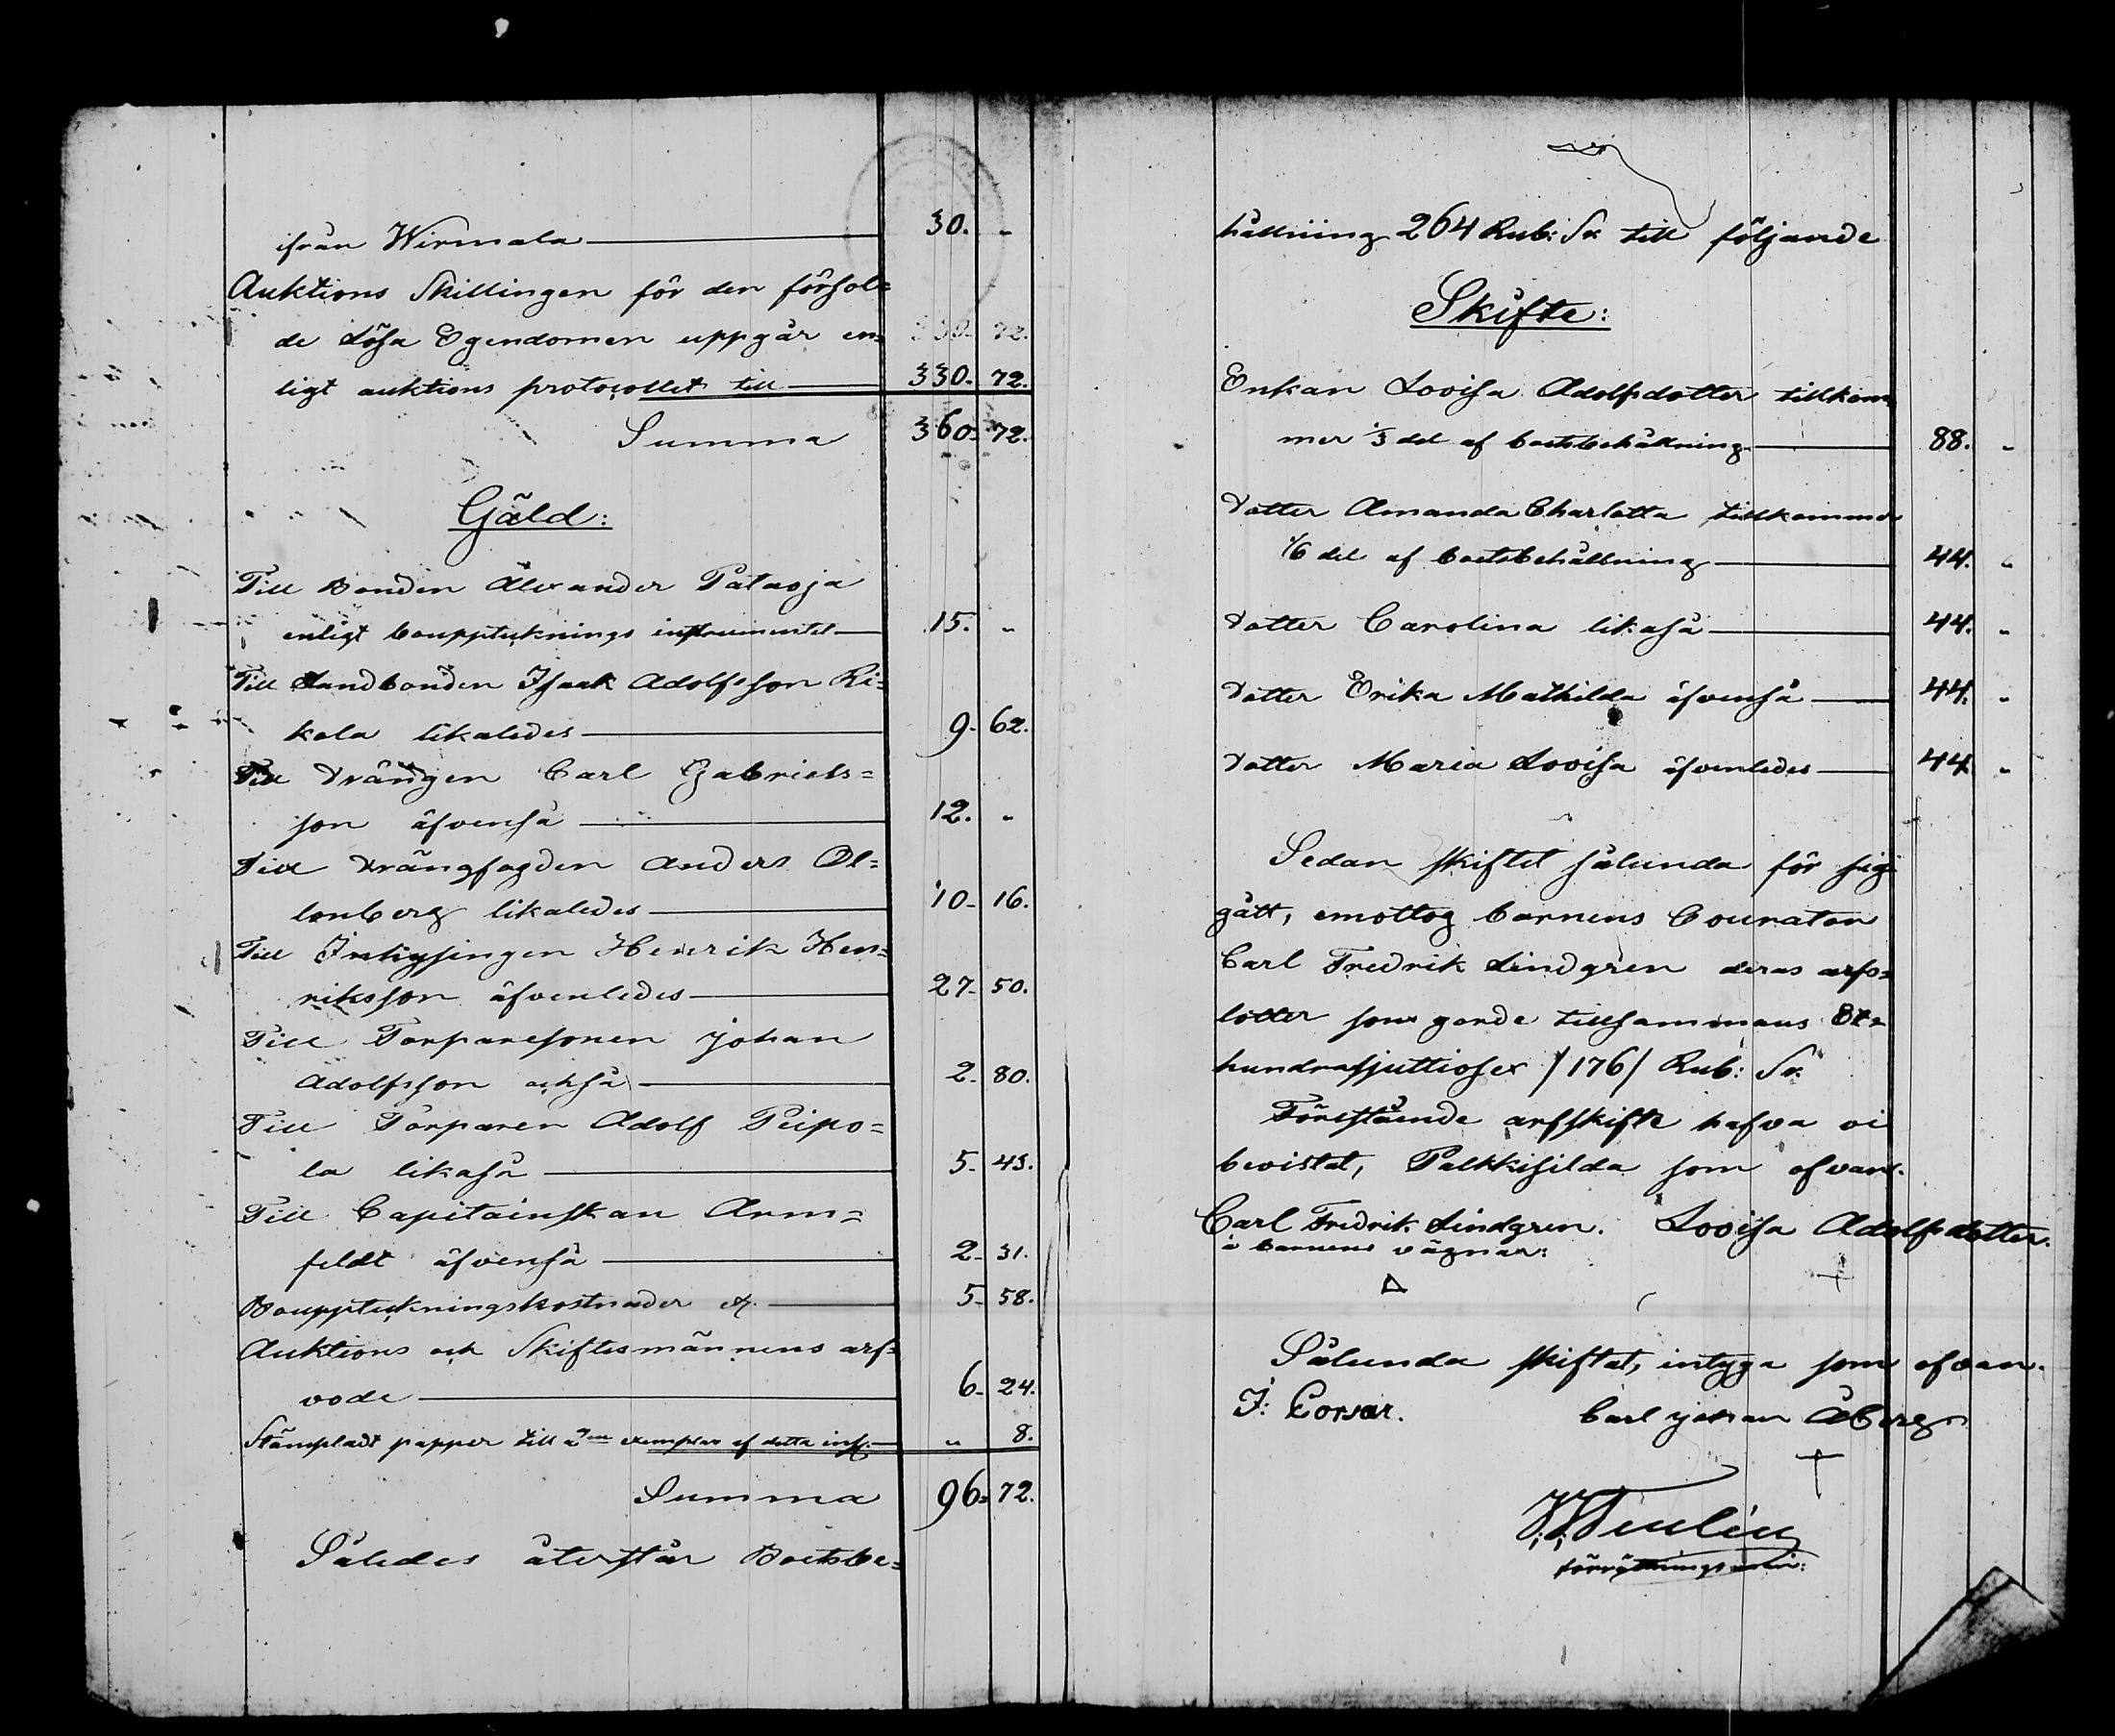 ifrån Wirmala 30. -
Auktions Skillingen för den försol=
de Lösa Egendomen uppgår en= 330. 72.
ligt auktions protocollet till 330. 72.
Summa 360. 72.
Gäld:
Till Bonden Alexander Pataoja
enligt bouppteknings instrumentet 15. -
Till Landbonden Isaak Adolfsson Ri=
kala likaledes 9. 62.
Till Drängen Carl Gabriels=
son äfvenså 12. -
Till Drängfogden Anders Ol=
lonberg likaledes 10. 16.
Till Inhysingen Henrik Hen=
riksson äfvenledes 27. 50.
Till Torparesonen Johan
Adolfsson också 2. 80.
Till Torparen Adolf Piipo=
la likaså 5. 43.
Till Capitainskan Arm=
feldt äfvenså 2. 31.
Bouppteckningskostnader 5. 58.
Auktions och Skiftesmännens arf=
vode 6. 24.
Stämpladt papper till 2ne exemplar af detta inst. " 8.
Summa 96. 72.
Således återstår Boetsbe=
hållning 264 Rub: Sr till följande
Skifte:
Enkan Lovisa Adolfsdotter tillkom=
mer 1/3 del af boetsbehållning 88. -
Dotter Amanda Charlotta tillkommer
1/6 del af boetsbehållning 44. "
Dotter Carolina likaså 44. "
Dotter Erika Mathilda äfvenså 44. "
Dotter Maria Lovisa äfvenledes 44. "
Sedan skiftet sålunda för sig
gått, emottog barnens Courator
Carl Fredrik Lindgren deras arfs=
lotter som gorde tillsammans Et=
hundrasjuttiosex /176/ Rub: Sr.
Förestående arfskifte hafva vi
bevistat, Palkkisilda som ofvan.
Carl Fredrik Lindgren. Lovisa Adolfsdotter.
å barnens vägnar:
Sålunda skiftat, intyga som ofvan.
I: Corsar. Carl Johan Åberg
förrättningsman: